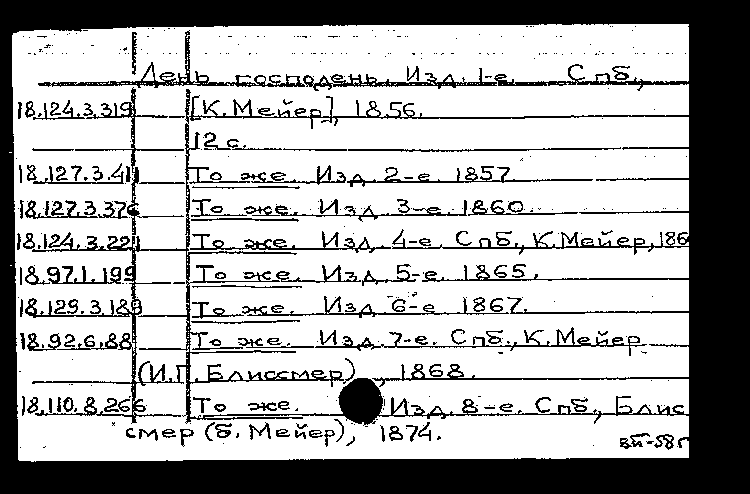 День господень. Изд. 1-е. Спб.,
18.124.3.319 [К. Мейер], 1856.
12 с.
18.127.3.411 То же. Изд. 2-е. 1857
18.127.3.376 То же. Изд. 3-е. 1860.
18.124.3.221 То же. Изд. 4-е. Спб., К. Мейер, 186
18.97.1.199 То же. Изд. 5-е. 1865.
18.129.3.189 То же. Изд 6-е 1867.
18.92.6.88 То же. Изд. 7-е. Спб., К. Мейер
(И.Г. Блиссмер), 1868.
18.110.8.266 То же. Изд. 8-е. Спб., Блис
смер (б. Мейер), 1874.